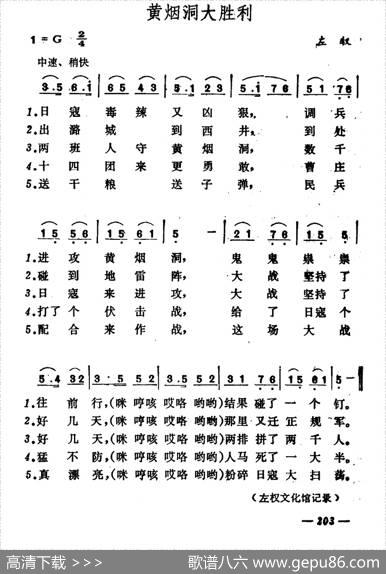 黄烟洞大胜利
1=G 2/4
左权
中速、稍快
3.5 6.1 | 65 43 | 5.1 65 | 5 51 | 5.1 76
1.日寇毒辣又凶狠,调兵
2.出潞城到西井,到处
3.两班人守黄烟洞,数千
4.十四团来更勇敢,曹庄
5.送干粮送子弹,民兵
15 56 | 16 15 | 5 - | 21 76 | 15 15
1.进攻黄烟洞,鬼鬼祟祟
2.碰到地雷阵,大战坚持了
3.日寇来进攻,大战坚持了
4.打了个伏击战,给了日寇个
5.配合来作战,这场大战
5.4 32 | 3.5 52 | 3.5 52 | 31 76 | 15 61 | 5 -
1.往前行,(咪哼咳哎咯哟哟)结果碰了一个钉。
2.好几天,(咪哼咳哎咯哟哟)那里又迁正规军。
3.好几天,(咪哼咳哎咯哟哟)两排拼了两千人。
4.猛不防,(咪哼咳哎咯哟哟)人马死了一大半。
5.真漂亮,(咪哼咳哎咯哟哟)粉碎日寇大扫荡。
(左权文化馆记录)
— 203 —
高清下载 >>> 歌谱八六 www.gepu86.com